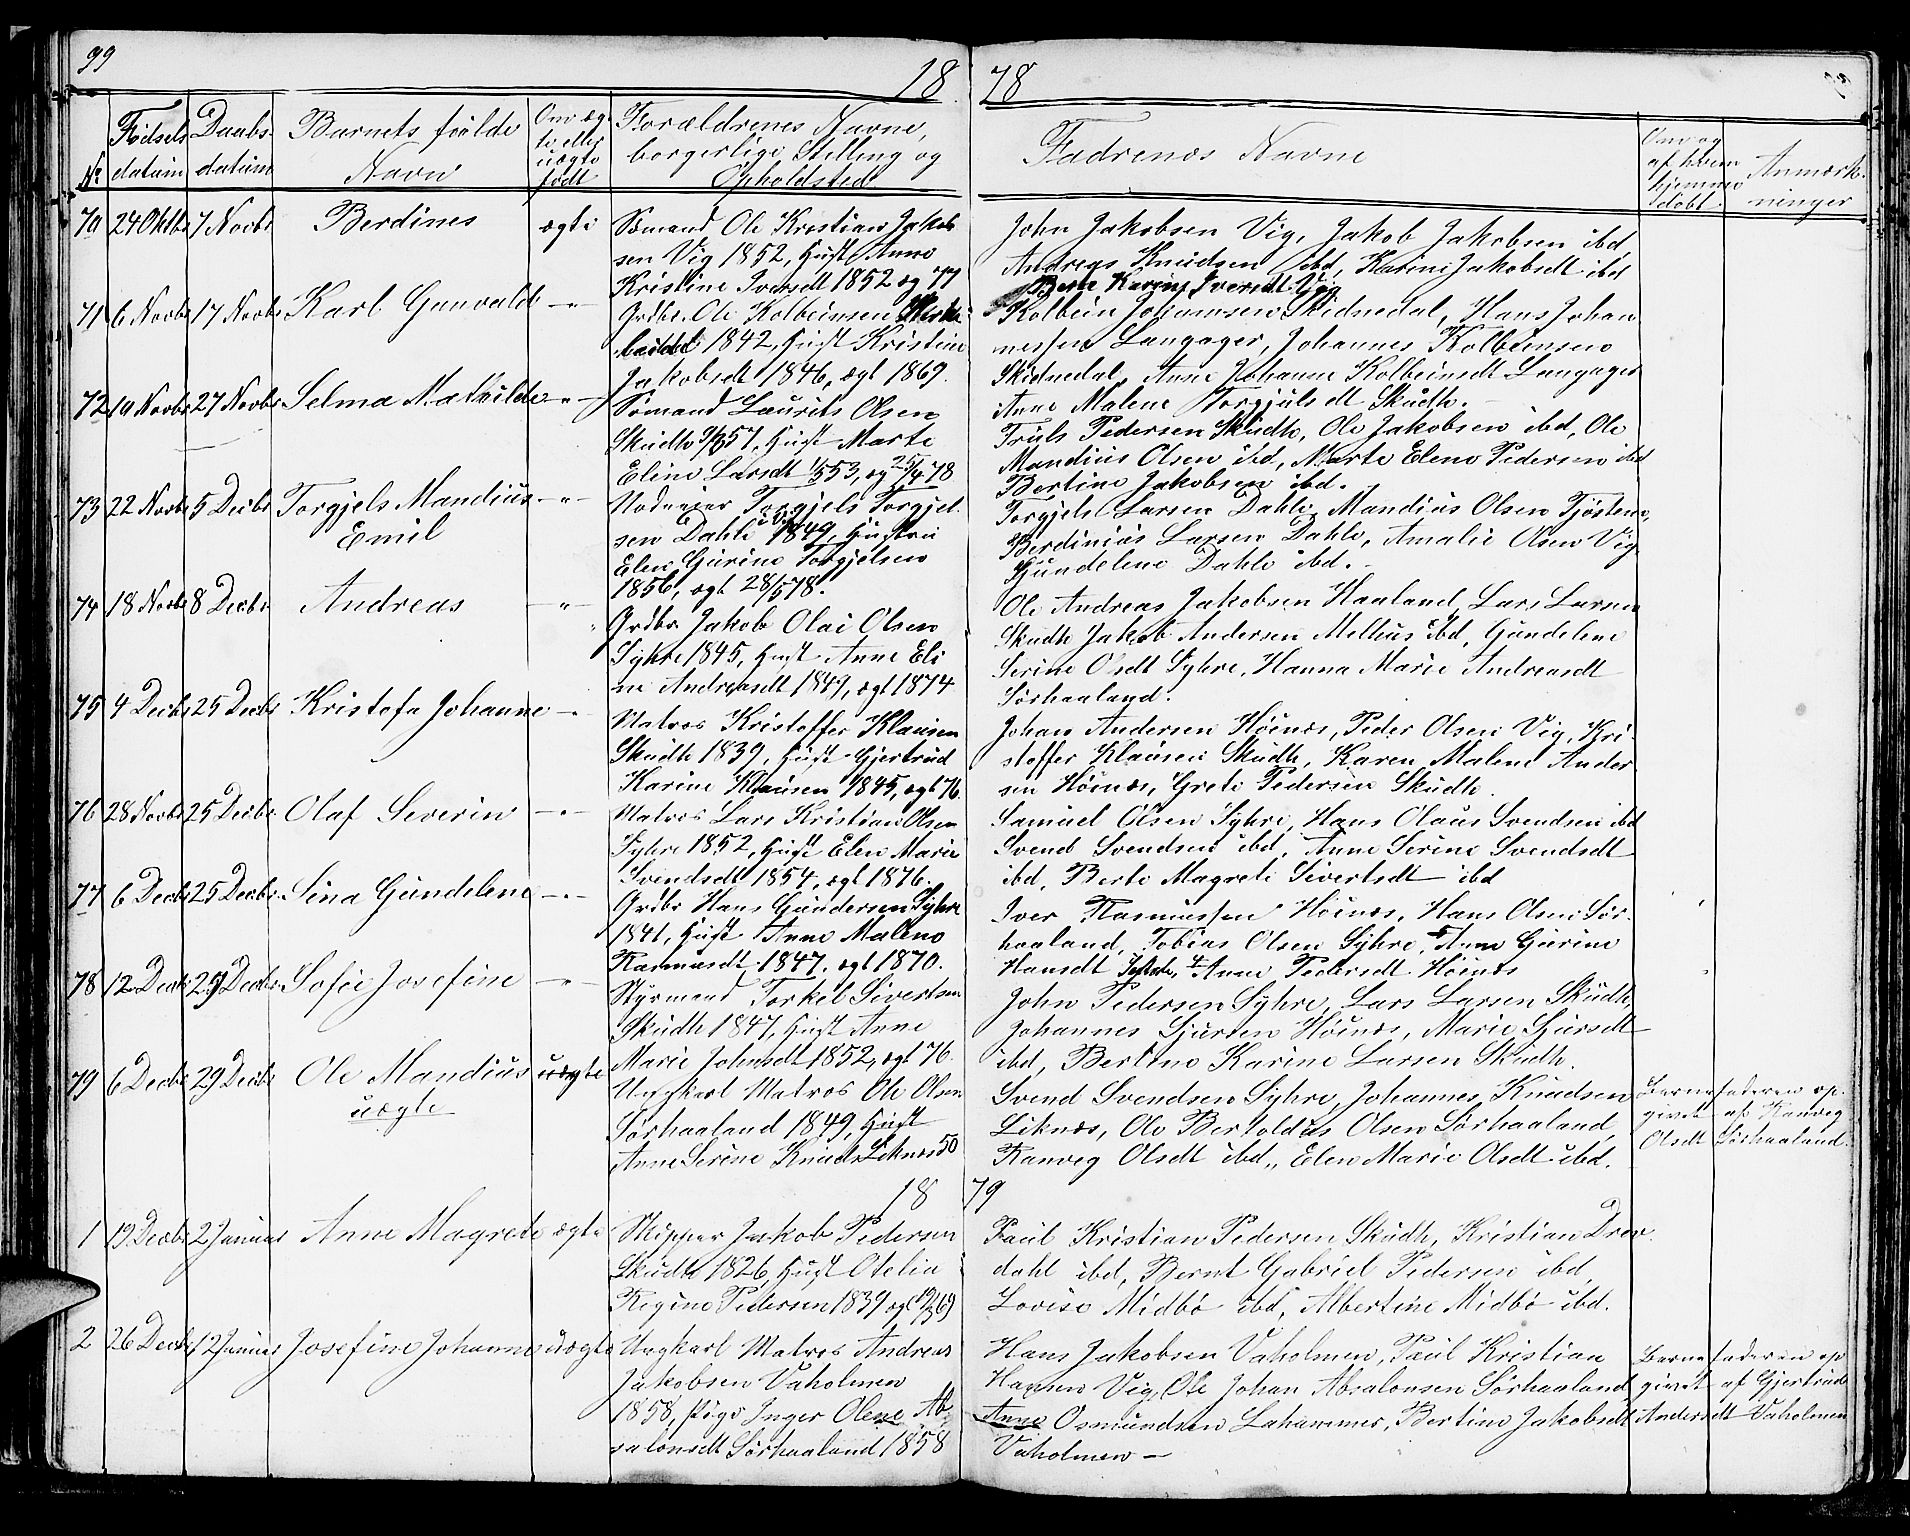 99
18 78
No
Fødsels datum
Daabs datum
Barnets fulde Navn
Om ægte eller uægte født
Forældrenes Navne, borgerlige Stilling og Opholdsted
Fadrenes Navne
Om og af hvem hjemme døbt
Anmærkninger
70 24 Oktbr 7 Novbr Berdines ægte
Sømand Ole Kristian Jakob
sen Vig 1852, Hust Anne
Kristine Iversdt 1852 æg 77
John Jakobsen Vig, Jakob Jakobsen ibd,
Andreas Knudsen ibd, Karine Jakobsdt ibd
Berte Karine Iversdt Vig
71 6 Novbr 17 Novbr Karl Gunvald -"-
Grdbr. Ole Kolbeinsen
1842, Hust Kristine
Jakobsdt 1846, ægt 1869.
Kolbein Johansen Skidnedal, Hans Johan
nessen Langager, Johannes Kolbeinsen
Skidnedal, Anne Johanne Kolbeinsdt Langager
Anne Malene Torgjulsdt Skudh.
72 19 Novbr 27 Novbr Selma Mathilde -"-
Sømand Laurits Olsen
Skudh 9/3 57, Hust Marte
Eline Larsdt 1/5 53, æg 25/4 78
Truls Pedersen Skudh, Ole Jakobsen ibd, Ole
Mandius Olsen ibd, Marte Elene Pedersen ibd
Bertine Jakobsen ibd.
73 22 Novbr 5 Decbr Torgjels Mandius -"-
Emil
Torgjels Torgjel
sen Dahle 1849, Hustru
Elen Gurine Torgjelsen
1856, ægt 28/5 78.
Torgjels Larsen Dahle, Mandius Olsen Tjøsteme,
Berdinius Larsen Dahle, Amalie Olsen Vig
Gundelene Dahle ibd.
74 18 Novbr 8 Decbr Andreas -"-
Grdbr Jakob Olai Olsen
Syhre 1845, Hust Anne Eli
ne Andreasdt 1849, ægt 1874
Ole Andreas Jakobsen Haaland, Lars Larsen
Skudh Jakob Andersen Melhus ibd, Gundelene
Serine Olsdt Syhre, Hanna Marie Andreasdt
Sørhaaland.
75 4 Decbr 25 Decbr Kristofa Johanne -"-
Matros Kristoffer Klausen
Skudh 1839, Hust Gjertrud
Karine Klausen 1845, ægt 76.
Johan Andersen Høines, Peder Olsen Vig, Kri
stoffer Klausen Skudh, Karen Malene Ander
sen Høines, Grete Pedersen Skudh.
76 28 Novbr 25 Decbr Olaf Severin -"-
Matros Lars Kristian Olsen
Syhre 1852, Hust Elen Marie
Svendsdt 1854, ægt 1876.
Samuel Olsen Syhre, Hans Olaus Svendsen ibd
Svend Svendsen ibd, Anne Serine Svendsdt
ibd, Berte Magrete Sivertsdt ibd
77 6 Decbr 25 Decbr Sina Gundelene -"-
Grdbr Hans Gundersen Syhre
1841, Hust Anne Malene
Rasmusdt 1847, ægt 1870.
Iver Rasmussen Høines, Hans Olsen Sør
haaland, Tobias Olsen Syhre, Anne Gurine
Hansdt Anne Pedersdt Høines
78 12 Decbr 29 Decbr Sofie Josefine -"-
Styrmand Torkel Sivertsen
Skudh 1847, Hust Anne
Marie Johnsdt 1852, ægt 76.
John Pedersen Syhre, Lars Larsen Skudh,
Johannes Sjursen Høines, Marie Sjursdt
ibd, Bertine Karine Larsen Skudh.
79 6 Decbr 29 Decbr Ole Mandius uægte
uægte
Ungkarl Matros Ole Olsen
Sørhaaland 1849, Hust
Anne Serine Knuds Liknes 50
Svend Svendsen Syhre, Johannes Knudsen
Liknes, Ole Bertoldus Olsen Sørhaaland,
Ranveg Olsdt ibd, Elen Marie Olsdt ibd.
Barnefaderen op
givet af Ranveg
Olsdt Sørhaaland.
18 79
1 19 Decbr 2 Januar Anne Magrete ægte
Skipper Jakob Pedersen
Skudh 1826, Hust Otelia
Regine Pedersen 1839 ægt 19/3 69
Paul Kristian Pedersen Skudh, Kristian Drev
dahl ibd, Bernt Gabriel Pedersen ibd,
Lovise Midbø ibd, Albertine Midbø ibd.
2 26 Decbr 12 Januar Josefine Johanne uægte
Ungkarl Matros Andreas
Jakobsen Vaholmen
1858, Pige Inger Olene Ab
salonsdt Sørhaaland 1858
Hans Jakobsen Vaholmen, Paul Kristian
Hansen Vig, Ole Johan Absalonsen Sørhaaland
Anne Osmundsen Lahammer, Bertine Jakobsdt
Vaholmen
Barnefaderen op
givet af Gjertrud
Andersdt Vaholmen